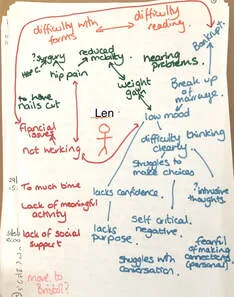 difficulty with
forms
difficulty
reading.
Bankrupt
?surgery
reduced
mobility
hearing
problems.
hip pain
weight
gain
Break up
of mairrage
to have
nails cut
Len
low mood
Fiancial
issues
not working
difficulty thinking
clearly
struggles to
make choices
?intrusive
thoughts
To much time
lacks confidence.
Lack of meaningful
activity
self critical.
negative.
lack of social
support
lacks
purpose.
fearful of
making
connections
(personal)
struggles with
conversation.
move to
Bristol?